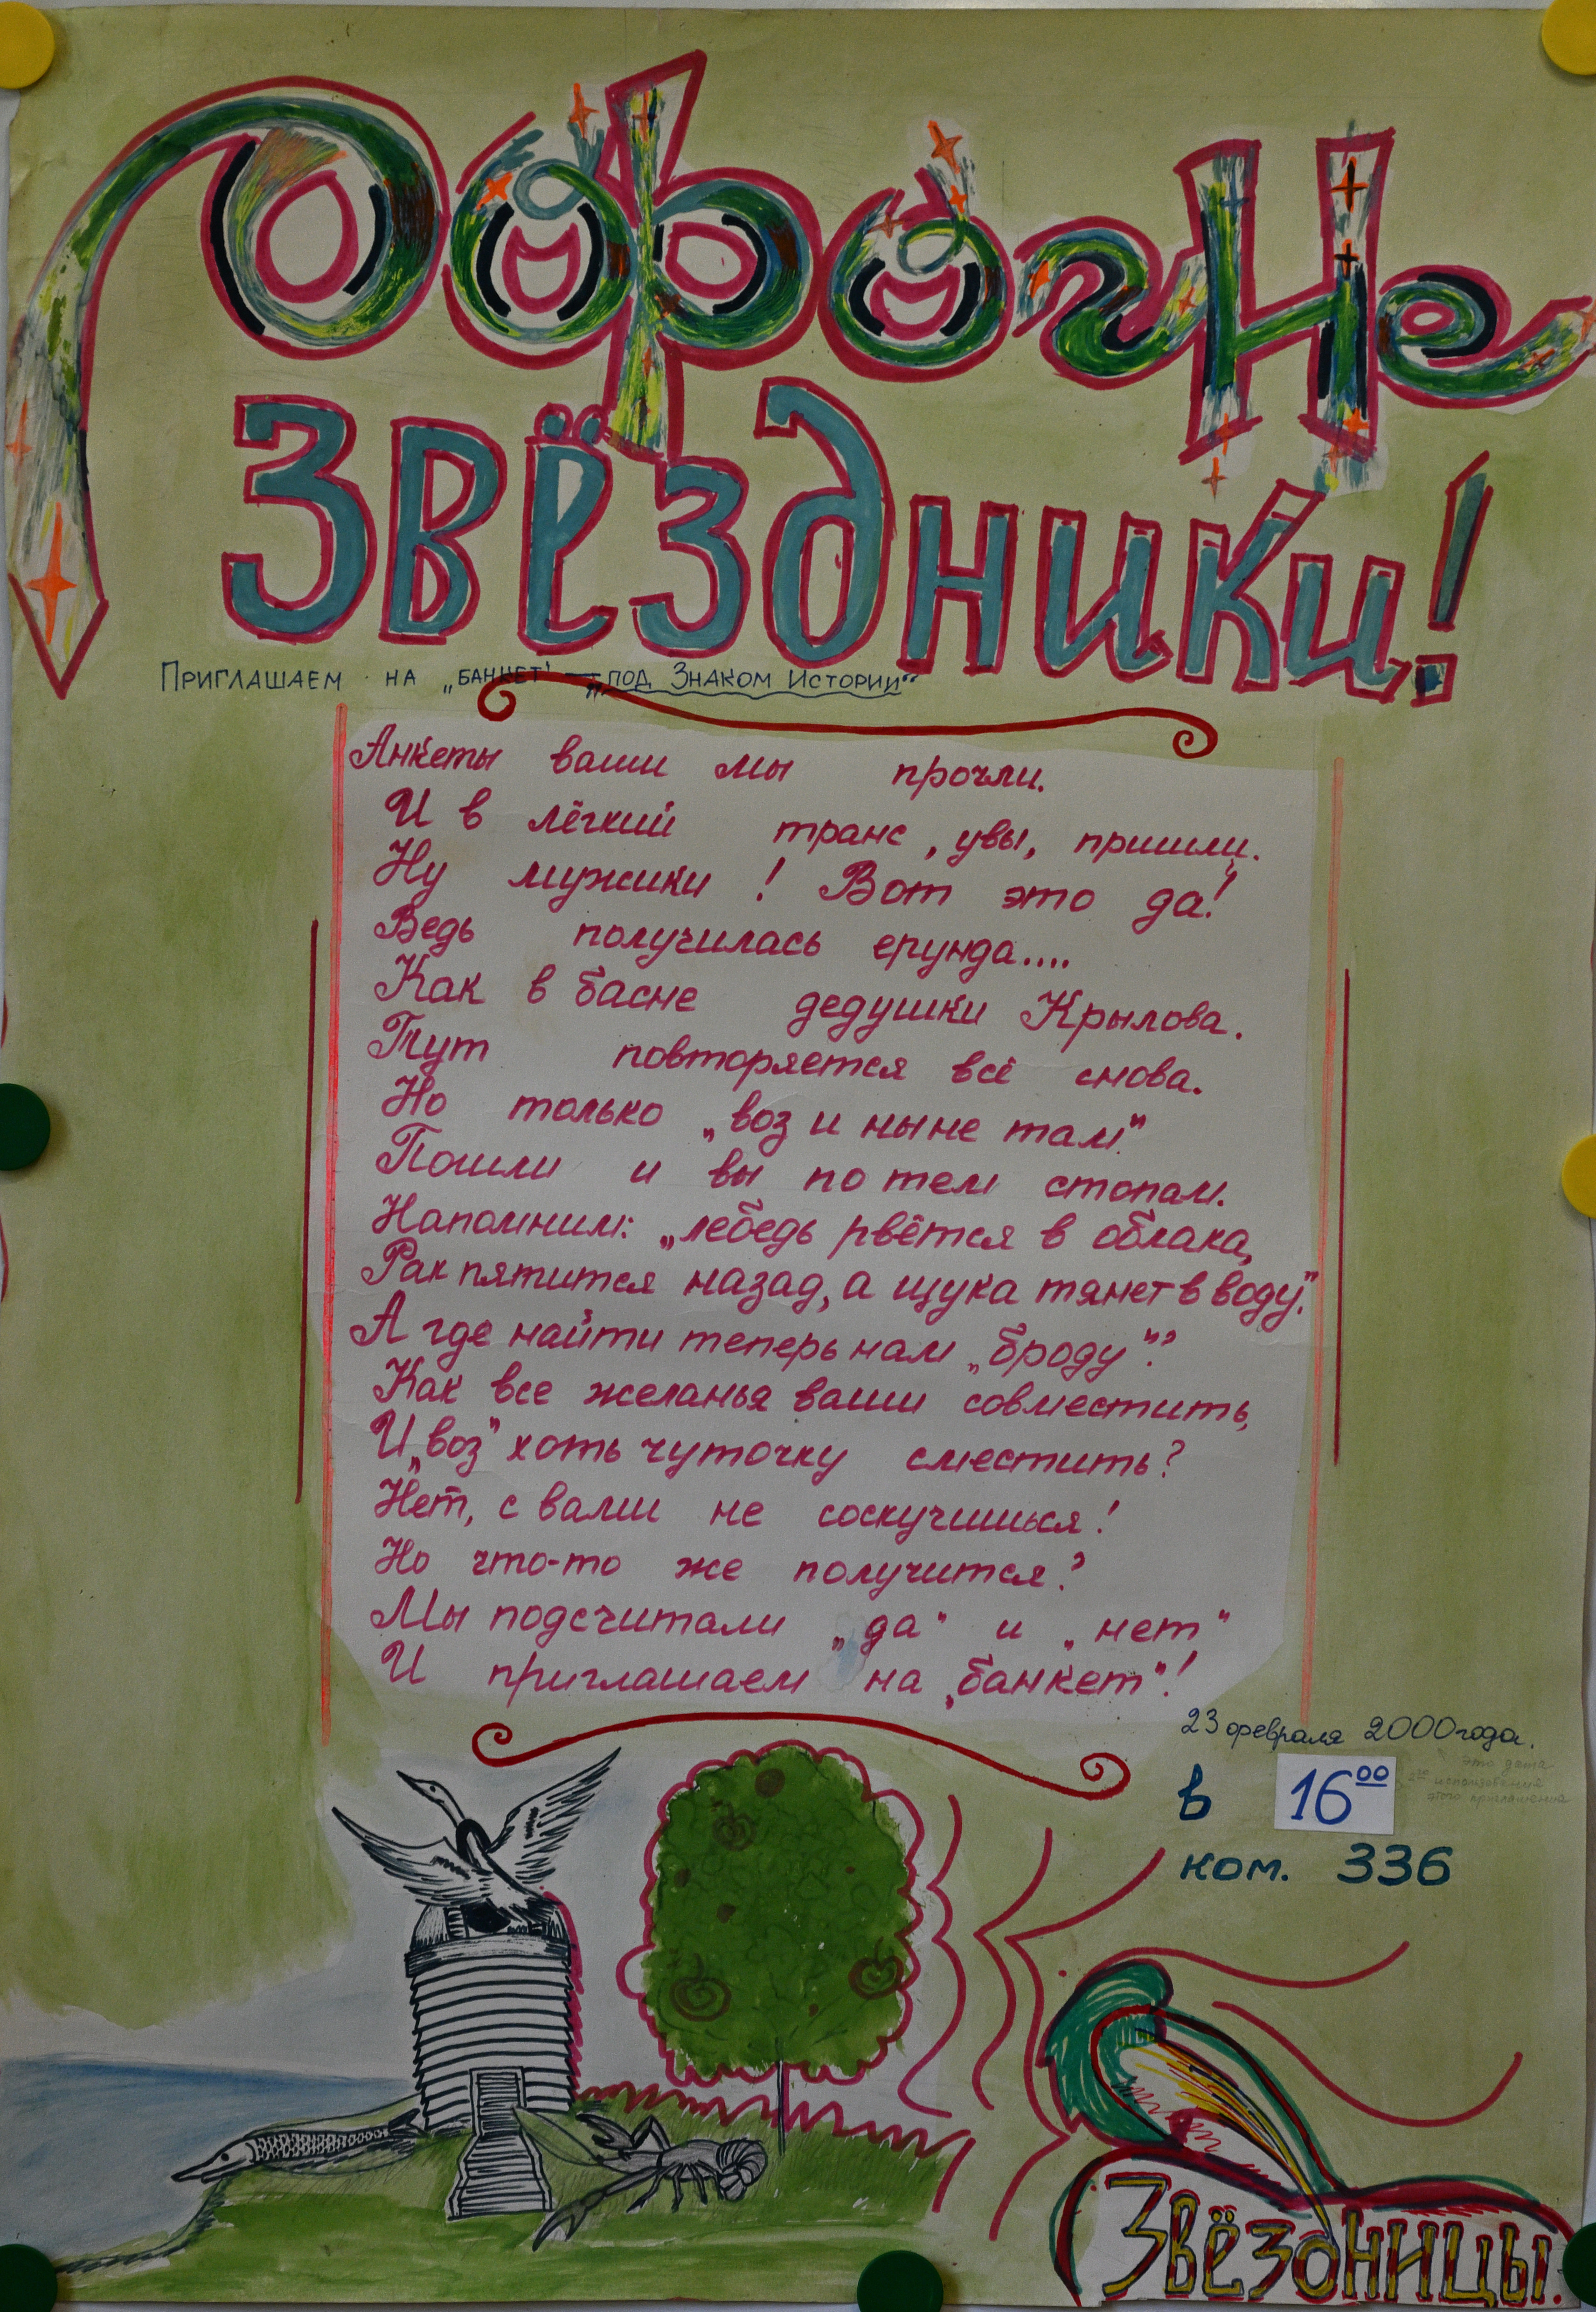 Дорогие
ЗВЁЗДНИКИ!
ПРИГЛАШАЕМ НА „БАНКЕТ" — „ПОД ЗНАКОМ ИСТОРИИ"
Анкеты ваши мы прочли.
И в лёгкий транс, увы, пришли.
Ну мужики! Вот это да!
Ведь получилась ерунда....
Как в басне дедушки Крылова.
Тут повторяется всё снова.
Но только „воз и ныне там."
Пошли и вы по тем стопам.
Напомним: „лебедь рвётся в облака,
Рак пятится назад, а щука тянет в воду."
А где найти теперь нам „броду"?
Как все желанья ваши совместить,
И „воз" хоть чуточку сместить?
Нет, с вами не соскучишься!
Но что-то же получится?
Мы подсчитали „да" и „нет"
И приглашаем на „банкет"!
23 февраля 2000 года.
это дата
в 16⁰⁰ использования
этого приглашения
ком. 336
ЗВЁЗДНИЦЫ.